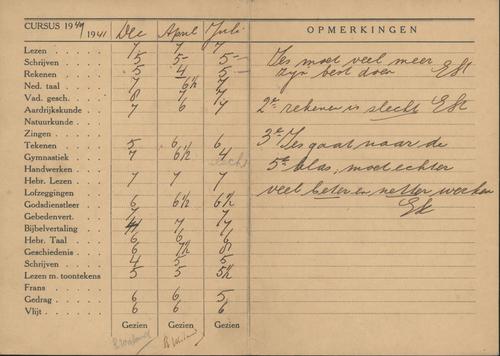 CURSUS 1940 1941 Dec April Juli
Lezen 7 7 7
Schrijven 5 5- 5-
Rekenen 5 4 5-
Ned. taal 7 6½ 7
Vad. gesch. 8 7 7
Aardrijkskunde 7 6 7
Natuurkunde
Zingen
Tekenen 5 6 6
Gymnastiek 7 6½ 4
Handwerken
Hebr. Lezen 7 7 7
Lofzeggingen
Godsdienstleer 6 6½ 6½
Gebedenvert. 7 7
Bijbelvertaling 7
Hebr. Taal 6 6 6
Geschiedenis 6 7½ 8
Schrijven 4 5 5
Lezen m. toontekens 5 5 5½
Frans
Gedrag 6 6 5
Vlijt 6 6 6
Gezien Gezien Gezien
OPMERKINGEN
Ies moet veel meer
zijn best doen
2e rekenen is slecht
3e Ies gaat naar de
5e klas, moet echter
veel beter en netter werken